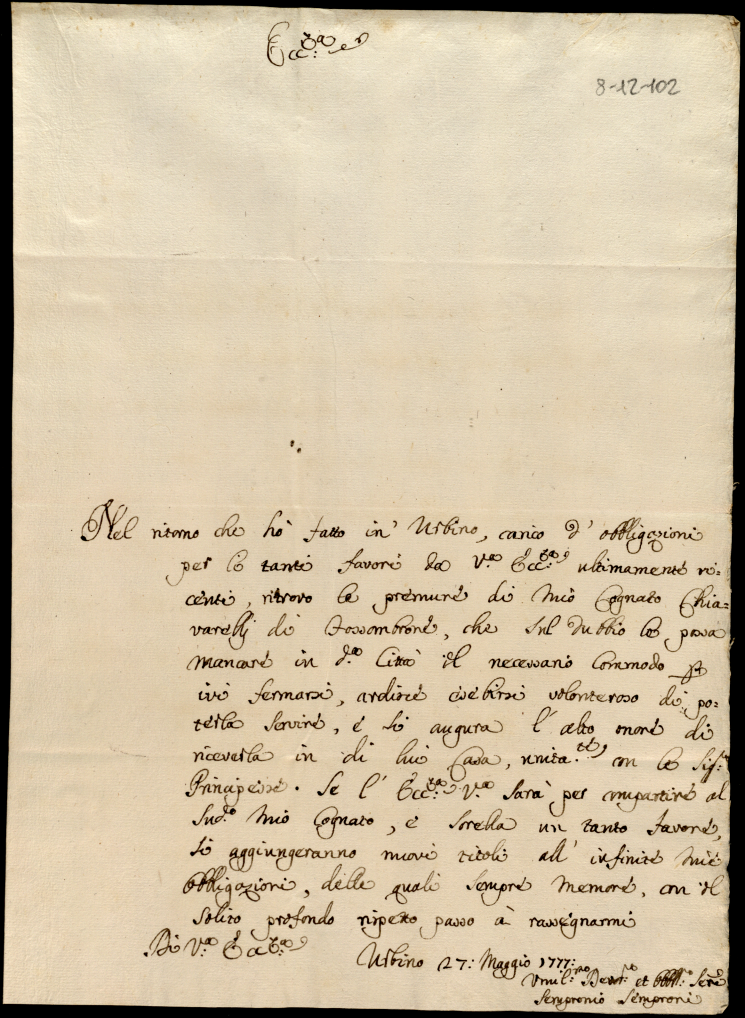 Ecc:za
8-12-102
Nel ritorno che hò fatto in Urbino, carico d'obbligazioni
per le tanti favori da V:a Ecc:za ultimamente ri-
centi, ritrovo le premure di mio Cognato Chia-
varelli di Fossombrone, che sul dubbio le possa
mancare in d:a Città il necessario commodo
ivi fermarsi, ardisce esebirsi volonteroso di po-
terla servire, e si augura l'alto onore di
riceverla in di lui Casa, unita:te con le Sig:
Principesse. Se l'Ecc:za V:a sarà per compartire al
Sud:o mio Cognato, e Sorella un tanto favore,
si aggiungeranno nuovi titoli all'infinite mie
obbligazioni, delle quali sempre memore, con il
solito profondo rispetto passo à rassegnarmi
Di V:a Ecc:za
Urbino 27: Maggio 1777:
Umil:mo Devot:mo et Obbl:mo Serre
Sempronio Semproni